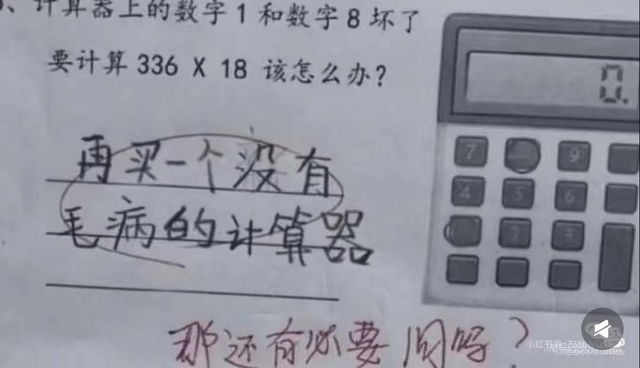 计算器上的数字1和数字8坏了
要计算336 X 18 该怎么办？
再买一个没有
毛病的计算器
那还有必要问吗？
0.
7
9
4
5
6
2
3
小红书